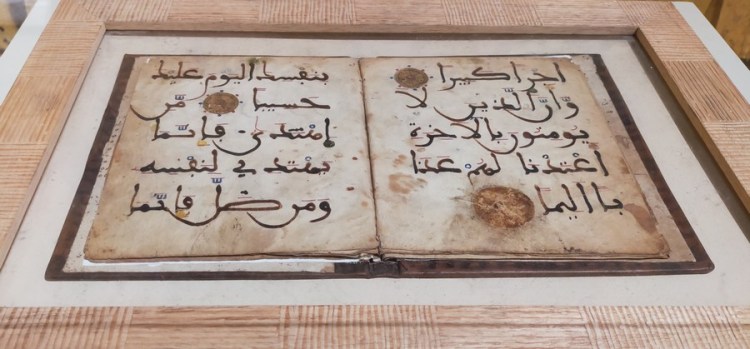 اجرا كبيرا
وأن الذين لا
يومنون بالاخرة
اعتدنا لهم عذا
با اليما
بنفسك اليوم عليك
حسيبا من
اهتدى فإنما
يهتدي لنفسه
ومن ضل فإنما